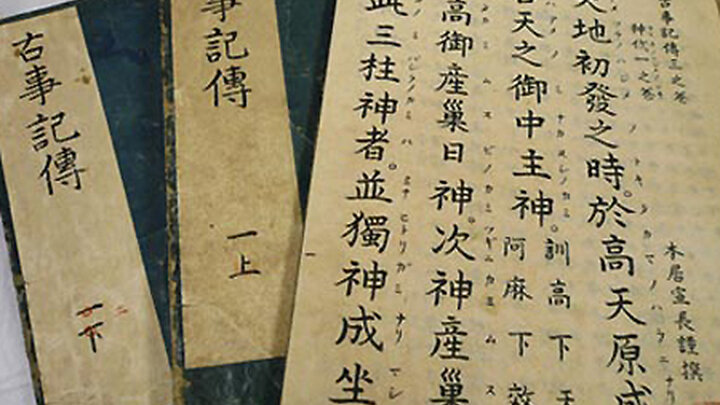 古事記傳
一下
事記傳
一上
古事記傳三之巻
神代一之巻
本居宣長謹撰
地初發之時。於高天原成
天之御中主神。訓高下天
阿麻下效
高御産巣日神。次神産巣
此三柱神者並獨神成坐